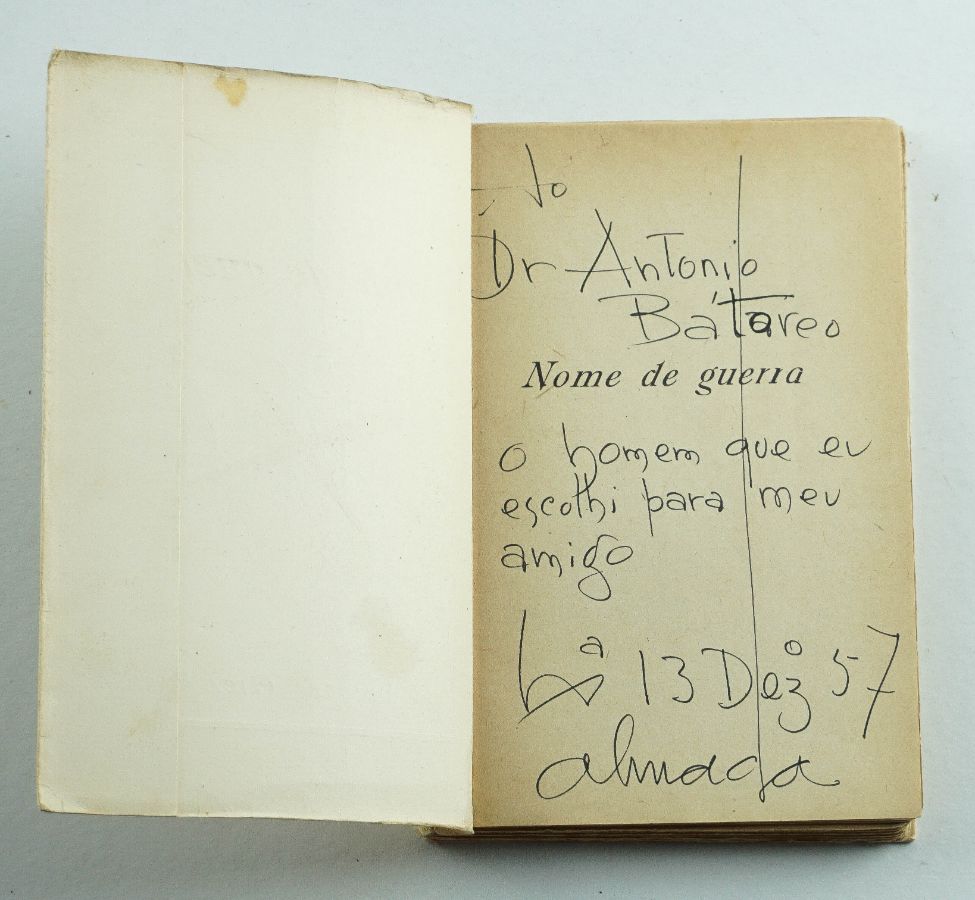 Ao
Dr Antonio
Bátareo
Nome de guerra
o homem que eu
escolhi para meu
amigo
Lxª 13 Dezº 57
almada